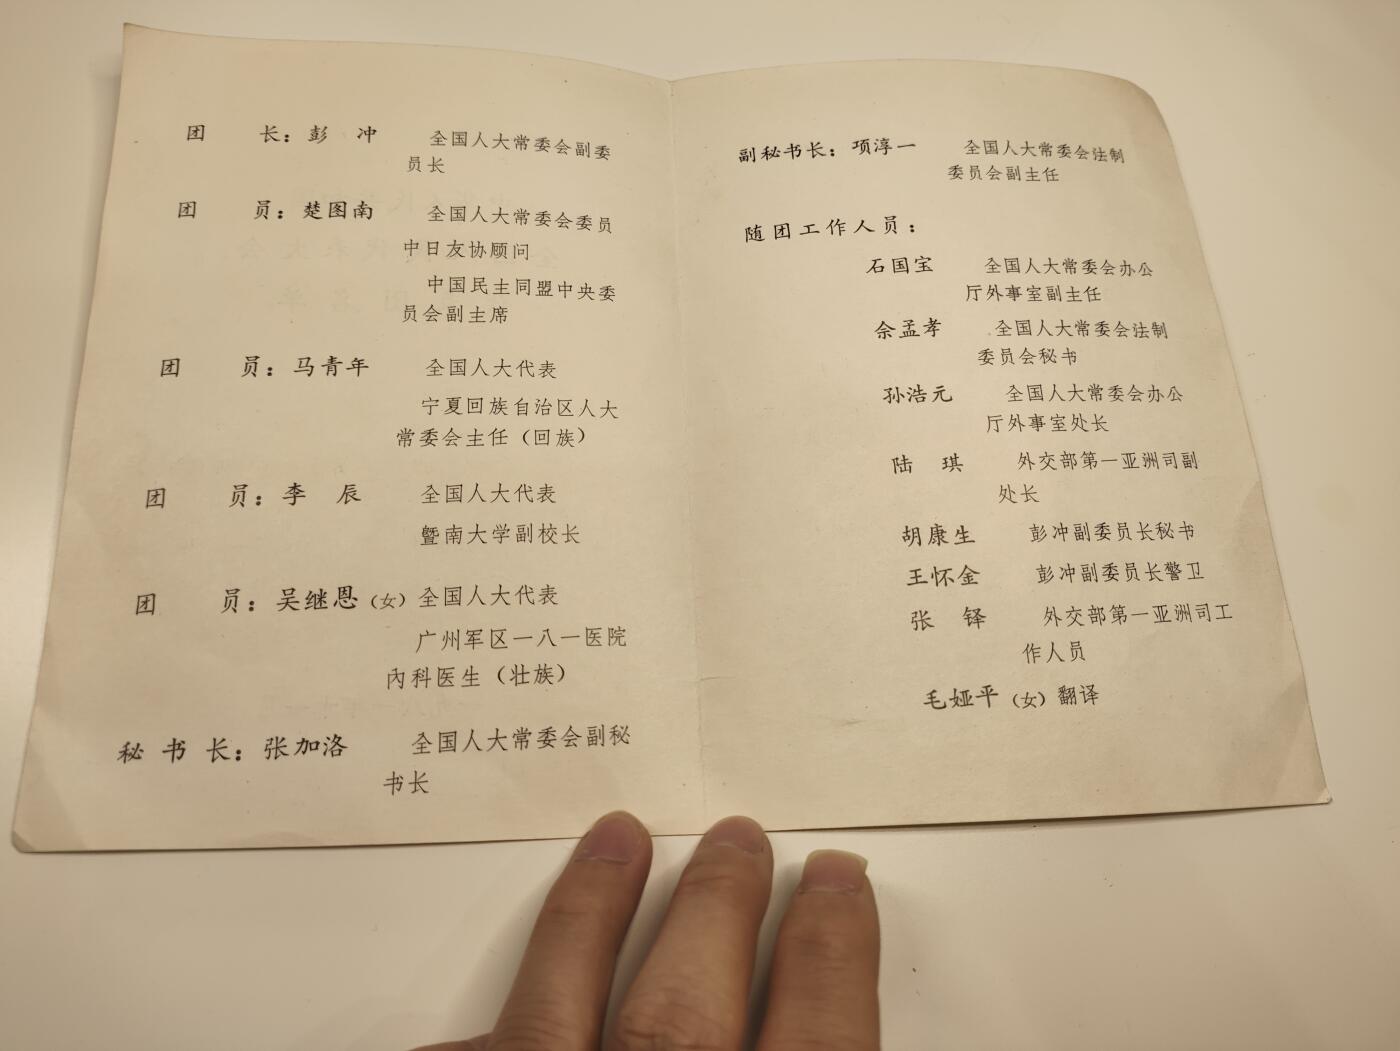 团 长：彭 冲 全国人大常委会副委
员长
团 员：楚图南 全国人大常委会委员
中日友协顾问
中国民主同盟中央委
员会副主席
团 员：马青年 全国人大代表
宁夏回族自治区人大
常委会主任（回族）
团 员：李 辰 全国人大代表
暨南大学副校长
团 员：吴继恩（女）全国人大代表
广州军区一八一医院
内科医生（壮族）
秘 书 长：张加洛 全国人大常委会副秘
书长
副秘书长：项淳一 全国人大常委会法制
委员会副主任
随团工作人员：
石国宝 全国人大常委会办公
厅外事室副主任
佘孟孝 全国人大常委会法制
委员会秘书
孙浩元 全国人大常委会办公
厅外事室处长
陆 琪 外交部第一亚洲司副
处长
胡康生 彭冲副委员长秘书
王怀金 彭冲副委员长警卫
张 铎 外交部第一亚洲司工
作人员
毛娅平（女）翻译